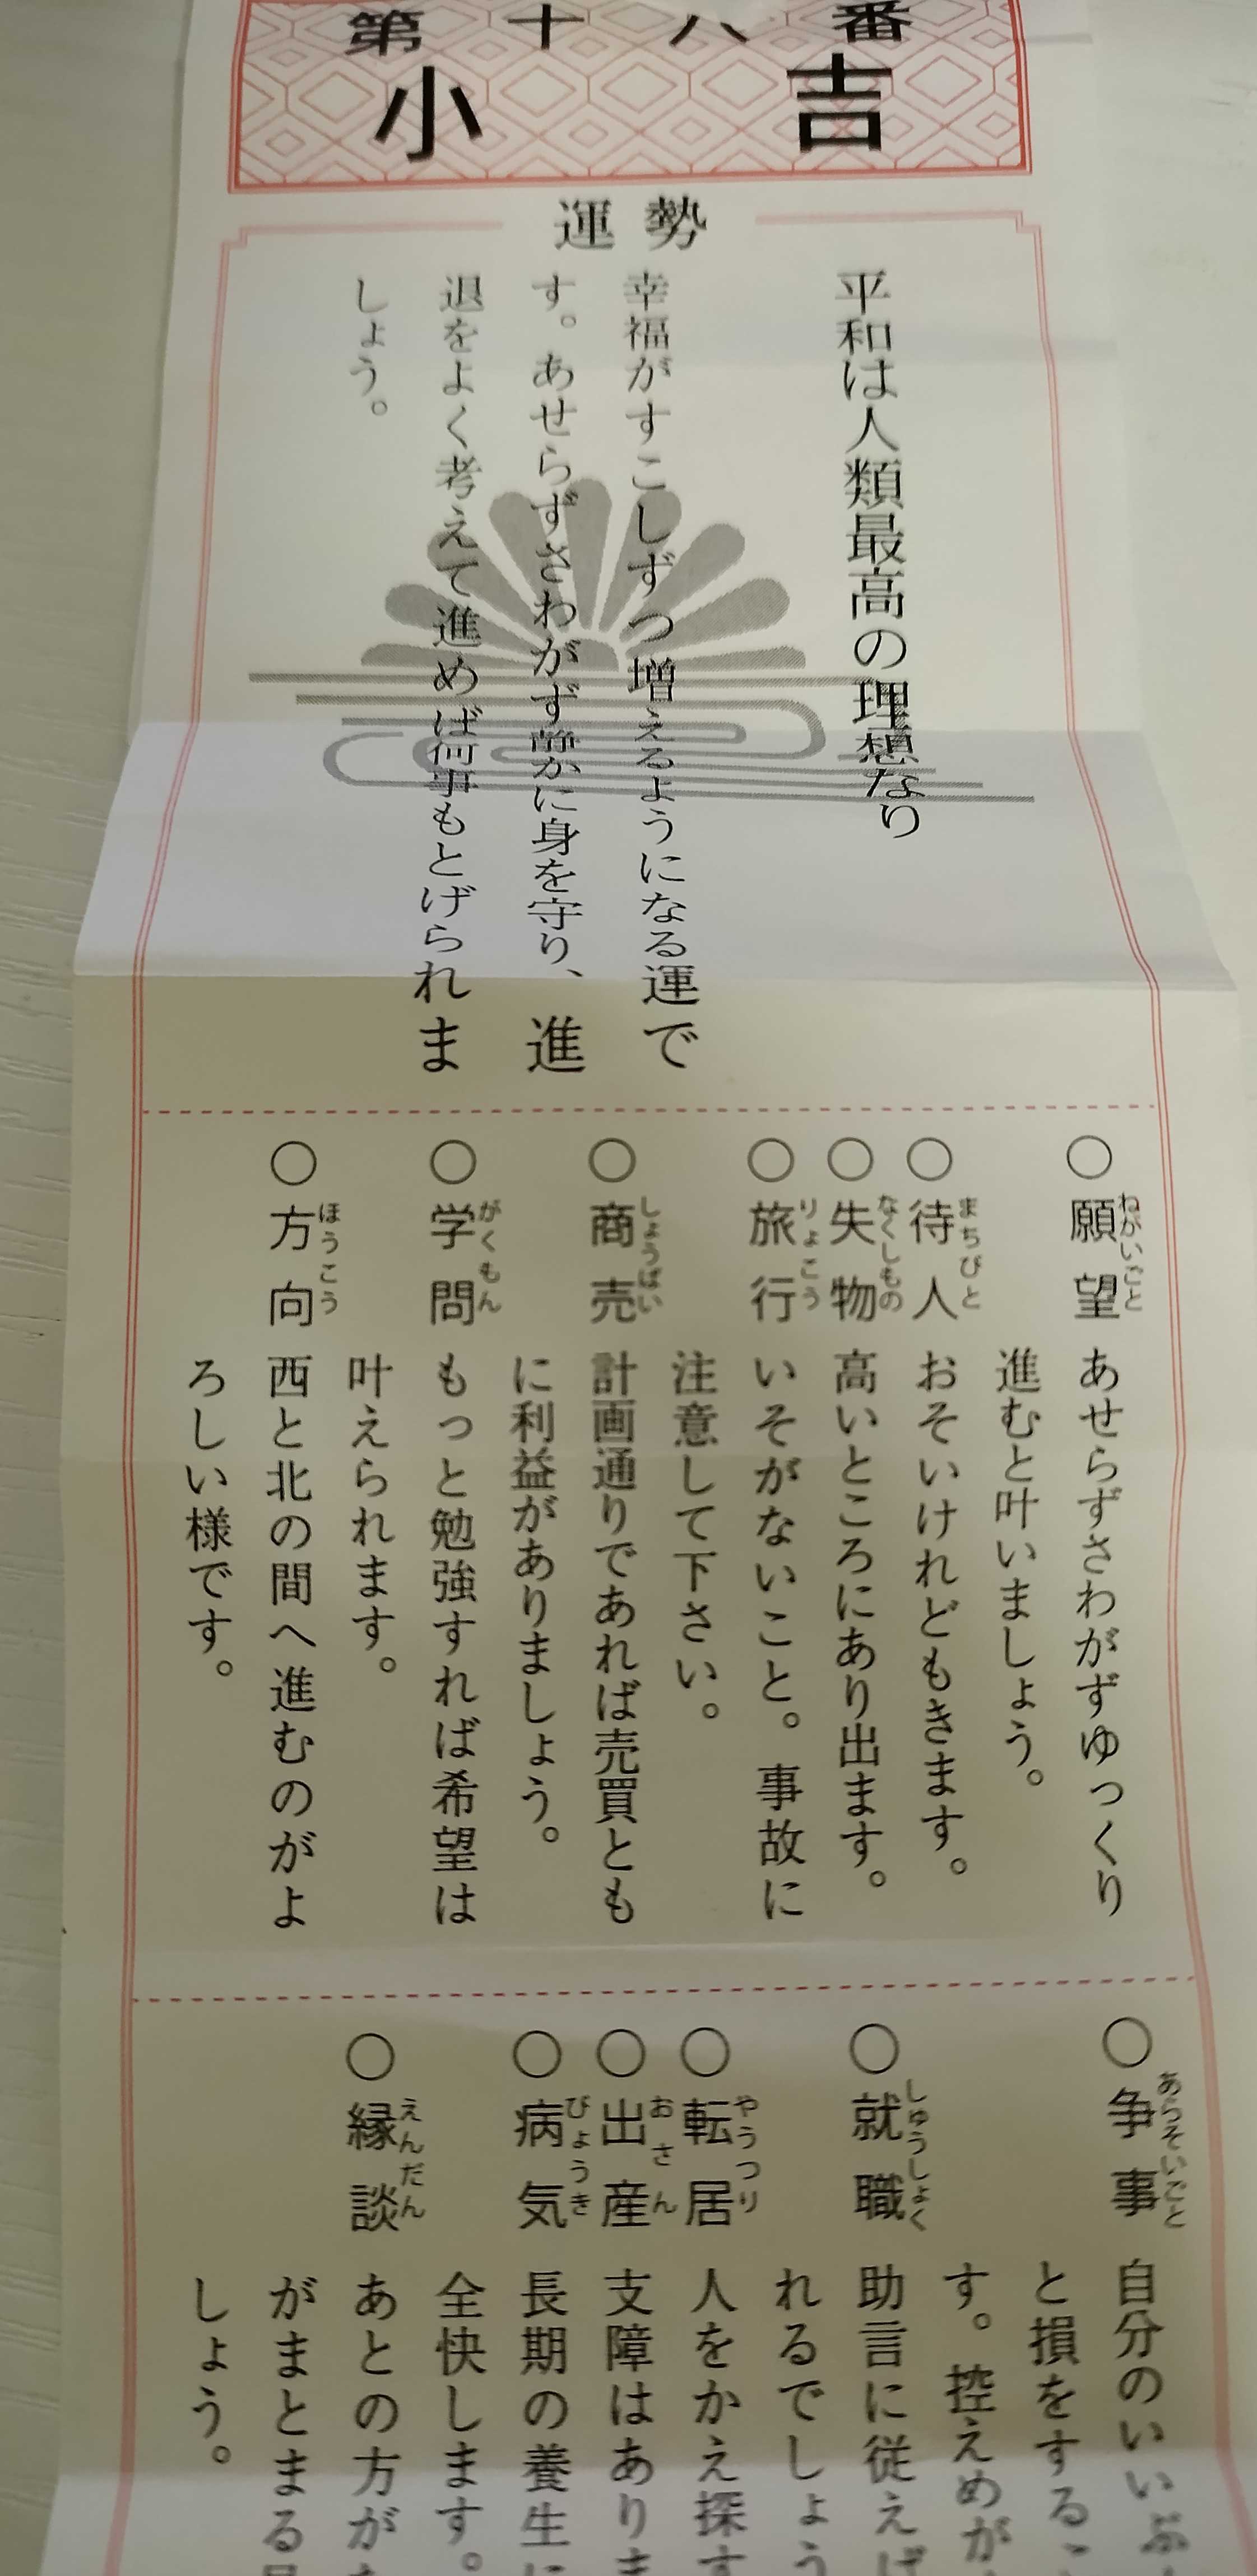 第十八番
小吉
運勢
平和は人類最高の理想なり
幸福がすこしずつ増えるようになる運で
す。あせらずさわがず静かに身を守り、進
退をよく考えて進めば何事もとげられま
しょう。
○願望 ねがいごと あせらずさわがずゆっくり
進むと叶いましょう。
○待人 まちびと おそいけれどもきます。
○失物 なくしもの 高いところにあり出ます。
○旅行 りょこう いそがないこと。事故に
注意して下さい。
○商売 しょうばい 計画通りであれば売買とも
に利益がありましょう。
○学問 がくもん もっと勉強すれば希望は
叶えられます。
○方向 ほうこう 西と北の間へ進むのがよ
ろしい様です。
○争事 あらそいごと 自分のいいぶ
と損をするこ
す。控えめが
○就職 しゅうしょく 助言に従えば
れるでしょう
○転居 やうつり 人をかえ探す
○出産 おさん 支障はありま
○病気 びょうき 長期の養生に
全快します。
○縁談 えんだん あとの方が
がまとまる
しょう。